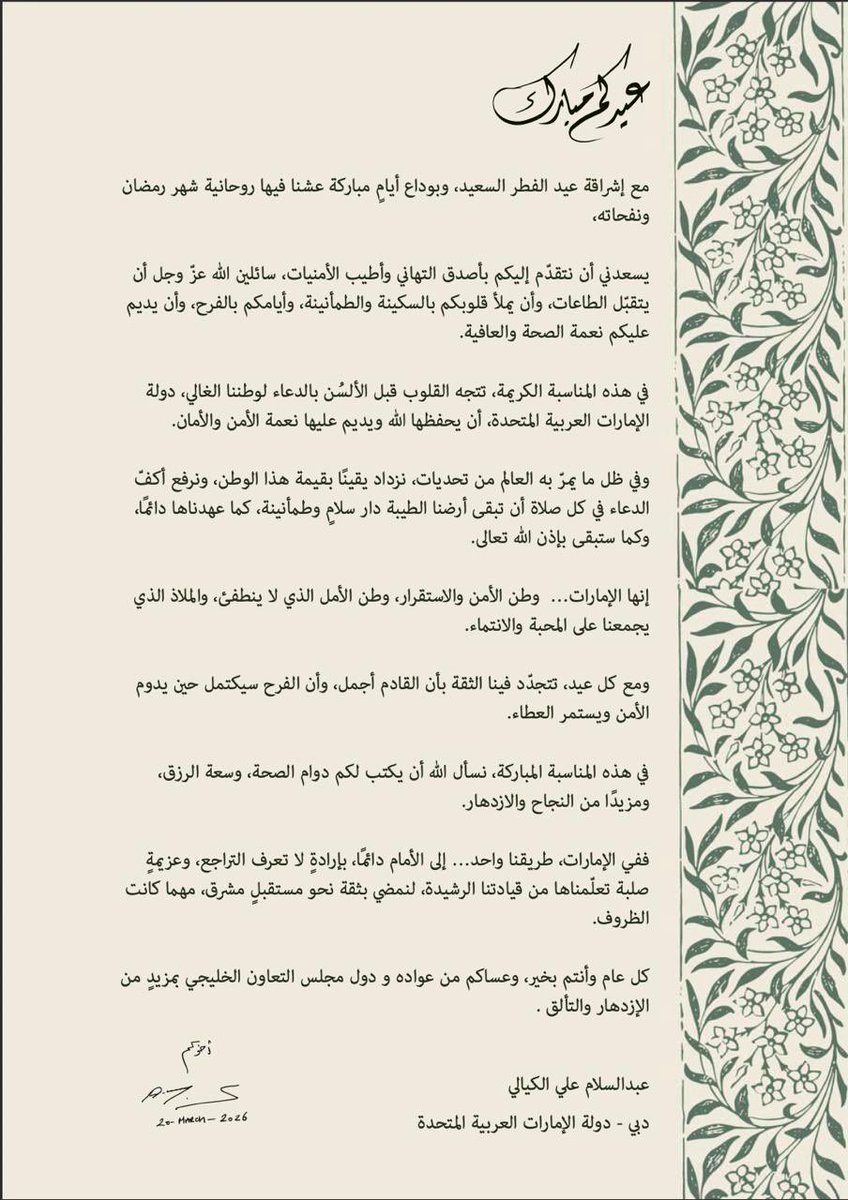 عيدكم مبارك
مع إشراقة عيد الفطر السعيد، وبوداع أيامٍ مباركة عشنا فيها روحانية شهر رمضان
ونفحاته،
يسعدني أن نتقدّم إليكم بأصدق التهاني وأطيب الأمنيات، سائلين الله عزّ وجل أن
يتقبّل الطاعات، وأن يملأ قلوبكم بالسكينة والطمأنينة، وأيامكم بالفرح، وأن يديم
عليكم نعمة الصحة والعافية.
في هذه المناسبة الكريمة، تتجه القلوب قبل الألسُن بالدعاء لوطننا الغالي، دولة
الإمارات العربية المتحدة، أن يحفظها الله ويديم عليها نعمة الأمن والأمان.
وفي ظل ما يمرّ به العالم من تحديات، نزداد يقينًا بقيمة هذا الوطن، ونرفع أكفّ
الدعاء في كل صلاة أن تبقى أرضنا الطيبة دار سلامٍ وطمأنينة، كما عهدناها دائمًا،
وكما ستبقى بإذن الله تعالى.
إنها الإمارات... وطن الأمن والاستقرار، وطن الأمل الذي لا ينطفئ، والملاذ الذي
يجمعنا على المحبة والانتماء.
ومع كل عيد، تتجدّد فينا الثقة بأن القادم أجمل، وأن الفرح سيكتمل حين يدوم
الأمن ويستمر العطاء.
في هذه المناسبة المباركة، نسأل الله أن يكتب لكم دوام الصحة، وسعة الرزق،
ومزيدًا من النجاح والازدهار.
ففي الإمارات، طريقنا واحد... إلى الأمام دائمًا، بإرادةٍ لا تعرف التراجع، وعزيمةٍ
صلبة تعلّمناها من قيادتنا الرشيدة، لنمضي بثقة نحو مستقبلٍ مشرق، مهما كانت
الظروف.
كل عام وأنتم بخير، وعساكم من عواده و دول مجلس التعاون الخليجي بمزيدٍ من
الإزدهار والتألق .
أخوكم
عبدالسلام علي الكيالي
20-MARCH-2026
دبي - دولة الإمارات العربية المتحدة